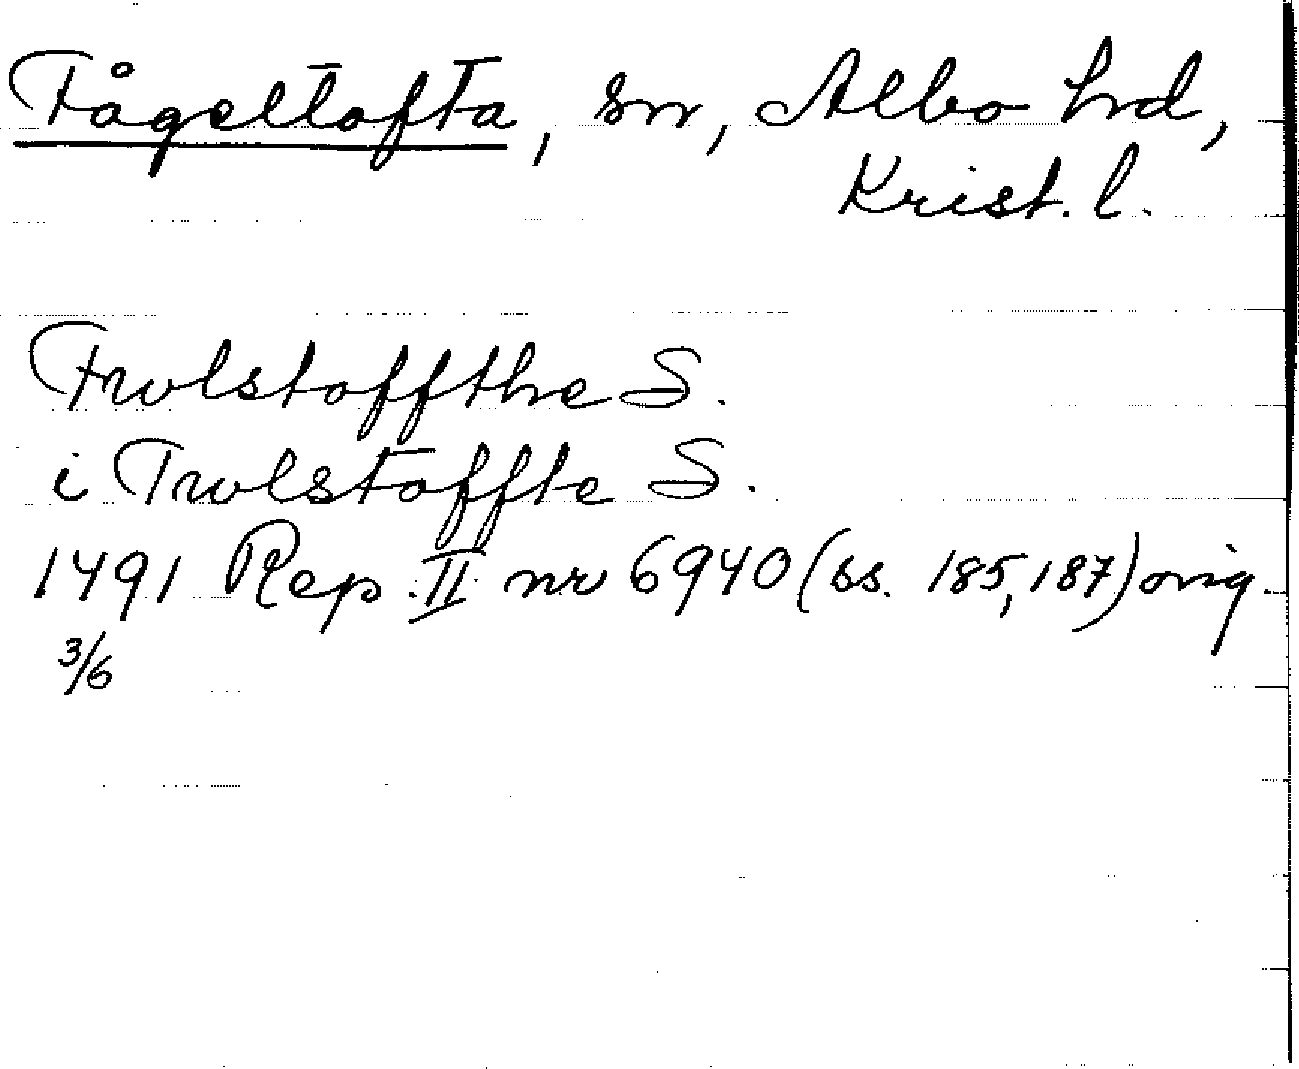 Fågeltofta, sn, Albo hd,
Krist. l.
Frolstoffthe S.
i Trolstoffte S.
1491 Rep. II nr 6940 (ss. 185, 187) orig.
3/6